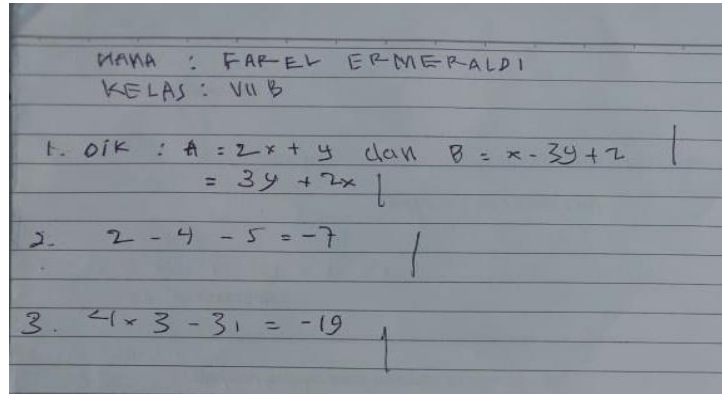 NAMA : FAREL ERMERALDI
KELAS : VII B
1. DIK : A = 2x + y dan B = x - 3y + 2
= 3y + 2x
2. 2 - 4 - 5 = -7
3. 4 x 3 - 31 = -19